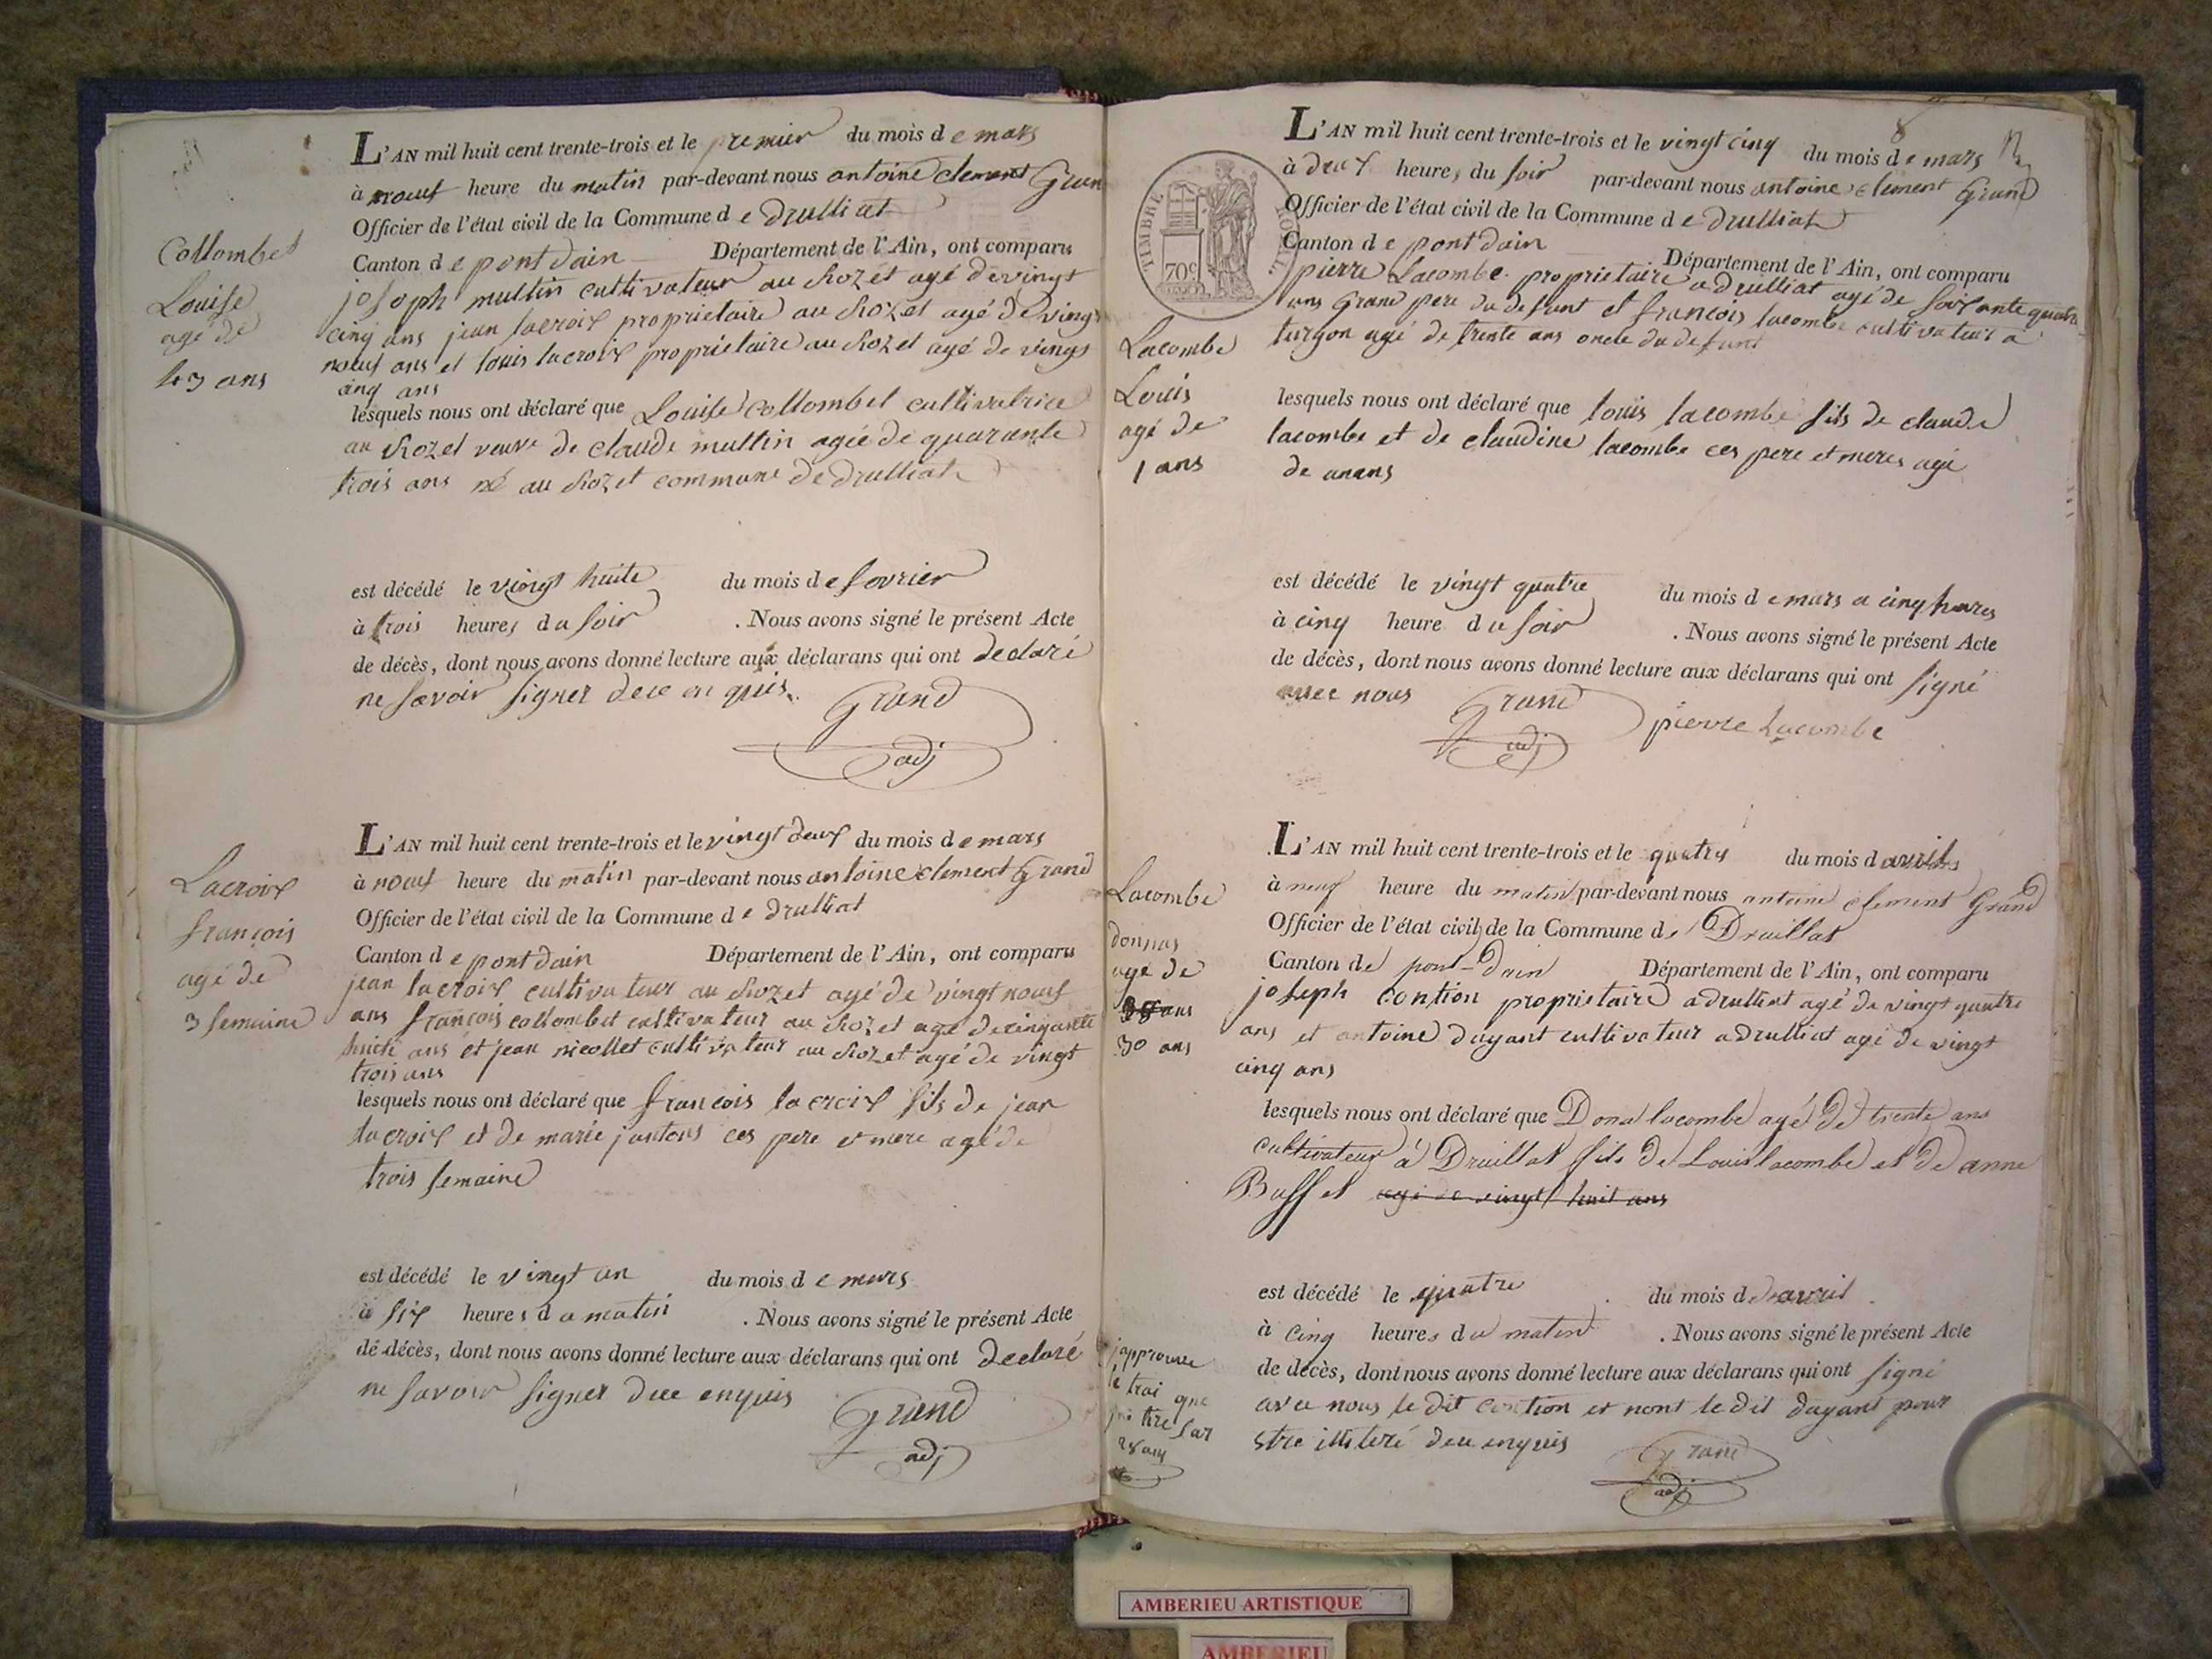 Collombet
Louise
agé de
43 ans
L'AN mil huit cent trente-trois et le premier du mois de mars
à neuf heure du matin par-devant nous antoine clement Gran
Officier de l'état civil de la Commune de drulliat
Canton de pont dain Département de l'Ain, ont comparu
joseph multin cultivateur au Rozet agé de vingt
cinq ans jean lacroix proprietaire au Rozet agé de vingt
neuf ans et louis lacroix proprietaire au Rozet agé de vingt
cinq ans
lesquels nous ont déclaré que Louise Collombet cultivatrice
au Rozet veuve de claude multin agée de quarante
trois ans né au Rozet commune de drulliat
est décédé le vingt huite du mois de fevrier
à trois heures du soir . Nous avons signé le présent Acte
de décès, dont nous avons donné lecture aux déclarans qui ont declaré
ne savoir signer de ce en quis.
Grand
adj
Lacroix
françois
agé de
3 semaine
L'AN mil huit cent trente-trois et le vingt deux du mois de mars
à neuf heure du matin par-devant nous antoine clement Grand
Officier de l'état civil de la Commune de drulliat
Canton de pont dain Département de l'Ain, ont comparu
jean lacroix cultivateur au Rozet agé de vingt neuf
ans françois collombet cultivateur au Rozet agé de cinquante
huite ans et jean nicollet cultivateur au Rozet agé de vingt
trois ans
lesquels nous ont déclaré que francois lacroix fils de jean
lacroix et de marie ces pere et mere agé de
trois semaine
est décédé le vingt un du mois de mars
à six heures du matin . Nous avons signé le présent Acte
de décès, dont nous avons donné lecture aux déclarans qui ont declaré
ne savoir signer de ce enquis
Grand
adj
8
TIMBRE ROYAL.
70c
Lacombe
Louis
agé de
1 ans
L'AN mil huit cent trente-trois et le vingt cinq du mois de mars
à deux heures du soir par-devant nous antoine clement Grand
Officier de l'état civil de la Commune de drulliat
Canton de pont dain Département de l'Ain, ont comparu
pierre Lacombe proprietaire a drulliat agé de soixante quatre
ans Grand pere du defunt et francois lacombe cultivateur a
turgon agé de trente ans oncle du defunt
lesquels nous ont déclaré que louis lacombe fils de claude
lacombe et de claudine lacombe ces pere et meres agé
de un ans
est décédé le vingt quatre du mois de mars a cinq heures
à cinq heure du soir . Nous avons signé le présent Acte
de décès, dont nous avons donné lecture aux déclarans qui ont signé
avec nous
Grand
adj
pierre Lacombe
Lacombe
donnas
agé de
28 ans
30 ans
L'AN mil huit cent trente-trois et le quatre du mois d avril
à neuf heure du matin par-devant nous antoine clement Grand
Officier de l'état civil de la Commune de Druillat
Canton de pont-Dain Département de l'Ain, ont comparu
joseph contion proprietaire a drulliat agé de vingt quatre
ans et antoine dayant cultivateur a drulliat agé de vingt
cinq ans
lesquels nous ont déclaré que Dona lacombe agé de trente ans
cultivateur à Druillat fils de Louis lacombe et de anne
Buffet agé de vingt huit ans
est décédé le quatre du mois d avril
à cinq heures du matin . Nous avons signé le présent Acte
de décès, dont nous avons donné lecture aux déclarans qui ont signé
avec nous le dit contion et nont le dit dayant pour
etre illiteré de ce enquis
Grand
adj
japprouve
le trai que
jai tire sur
28 ans
AMBERIEU ARTISTIQUE
AMBERIEU